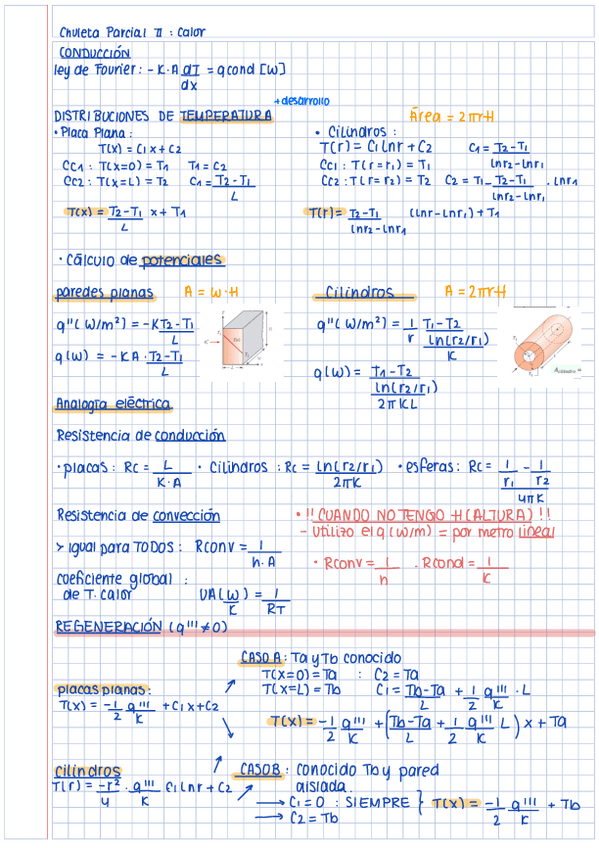 Chuleta Parcial II : Calor
CONDUCCIÓN
ley de Fourier : -K·A dT/dx = qcond [W]
+ desarrollo
DISTRIBUCIONES DE TEMPERATURA
Área = 2πrH
· Placa Plana :
T(x) = C1x + C2
CC1 : T(x=0) = T1   T1 = C2
CC2 : T(x=L) = T2   C1 = T2-T1/L
T(x) = T2-T1/L x + T1
· Cilindros :
T(r) = C1 lnr + C2   C1 = T2-T1/lnr2-lnr1
CC1 : T(r=r1) = T1
CC2 : T(r=r2) = T2   C2 = T1 - T2-T1/lnr2-lnr1 · lnr1
T(r) = T2-T1/lnr2-lnr1 (lnr-lnr1) + T1
· Cálculo de potenciales
paredes planas   A = W·H
q''(W/m²) = -K T2-T1/L
q(W) = -KA · T2-T1/L
Cilindros   A = 2πrH
q''(W/m²) = 1/r T1-T2/ln(r2/r1)/K
q(W) = T1-T2/ln(r2/r1)/2πKL
Analogía eléctrica
Resistencia de conducción
· placas : Rc = L/K·A · Cilindros : Rc = ln(r2/r1)/2πK · esferas : Rc = 1/r1 - 1/r2/4πK
Resistencia de convección
> igual para TODOS : Rconv = 1/h·A
coeficiente global : de T. calor   UA(W/K) = 1/RT
· !! CUANDO NO TENGO H (ALTURA) !!
- Utilizo el q (W/m) = por metro lineal
· Rconv = 1/h · Rcond = 1/K
REGENERACIÓN (q''' ≠ 0)
placas planas :
T(x) = -1/2 q'''/K + C1x + C2
CASO A : Ta y Tb conocido
T(x=0) = Ta : C2 = Ta
T(x=L) = Tb   C1 = Tb-Ta/L + 1/2 q'''/K · L
T(x) = -1/2 q'''/K + (Tb-Ta/L + 1/2 q'''/K L) x + Ta
cilindros
T(r) = -r²/4 · q'''/K C1 lnr + C2
CASO B : conocido Tb y pared
aislada
→ C1 = 0 : SIEMPRE
→ C2 = Tb
} T(x) = -1/2 q'''/K + Tb